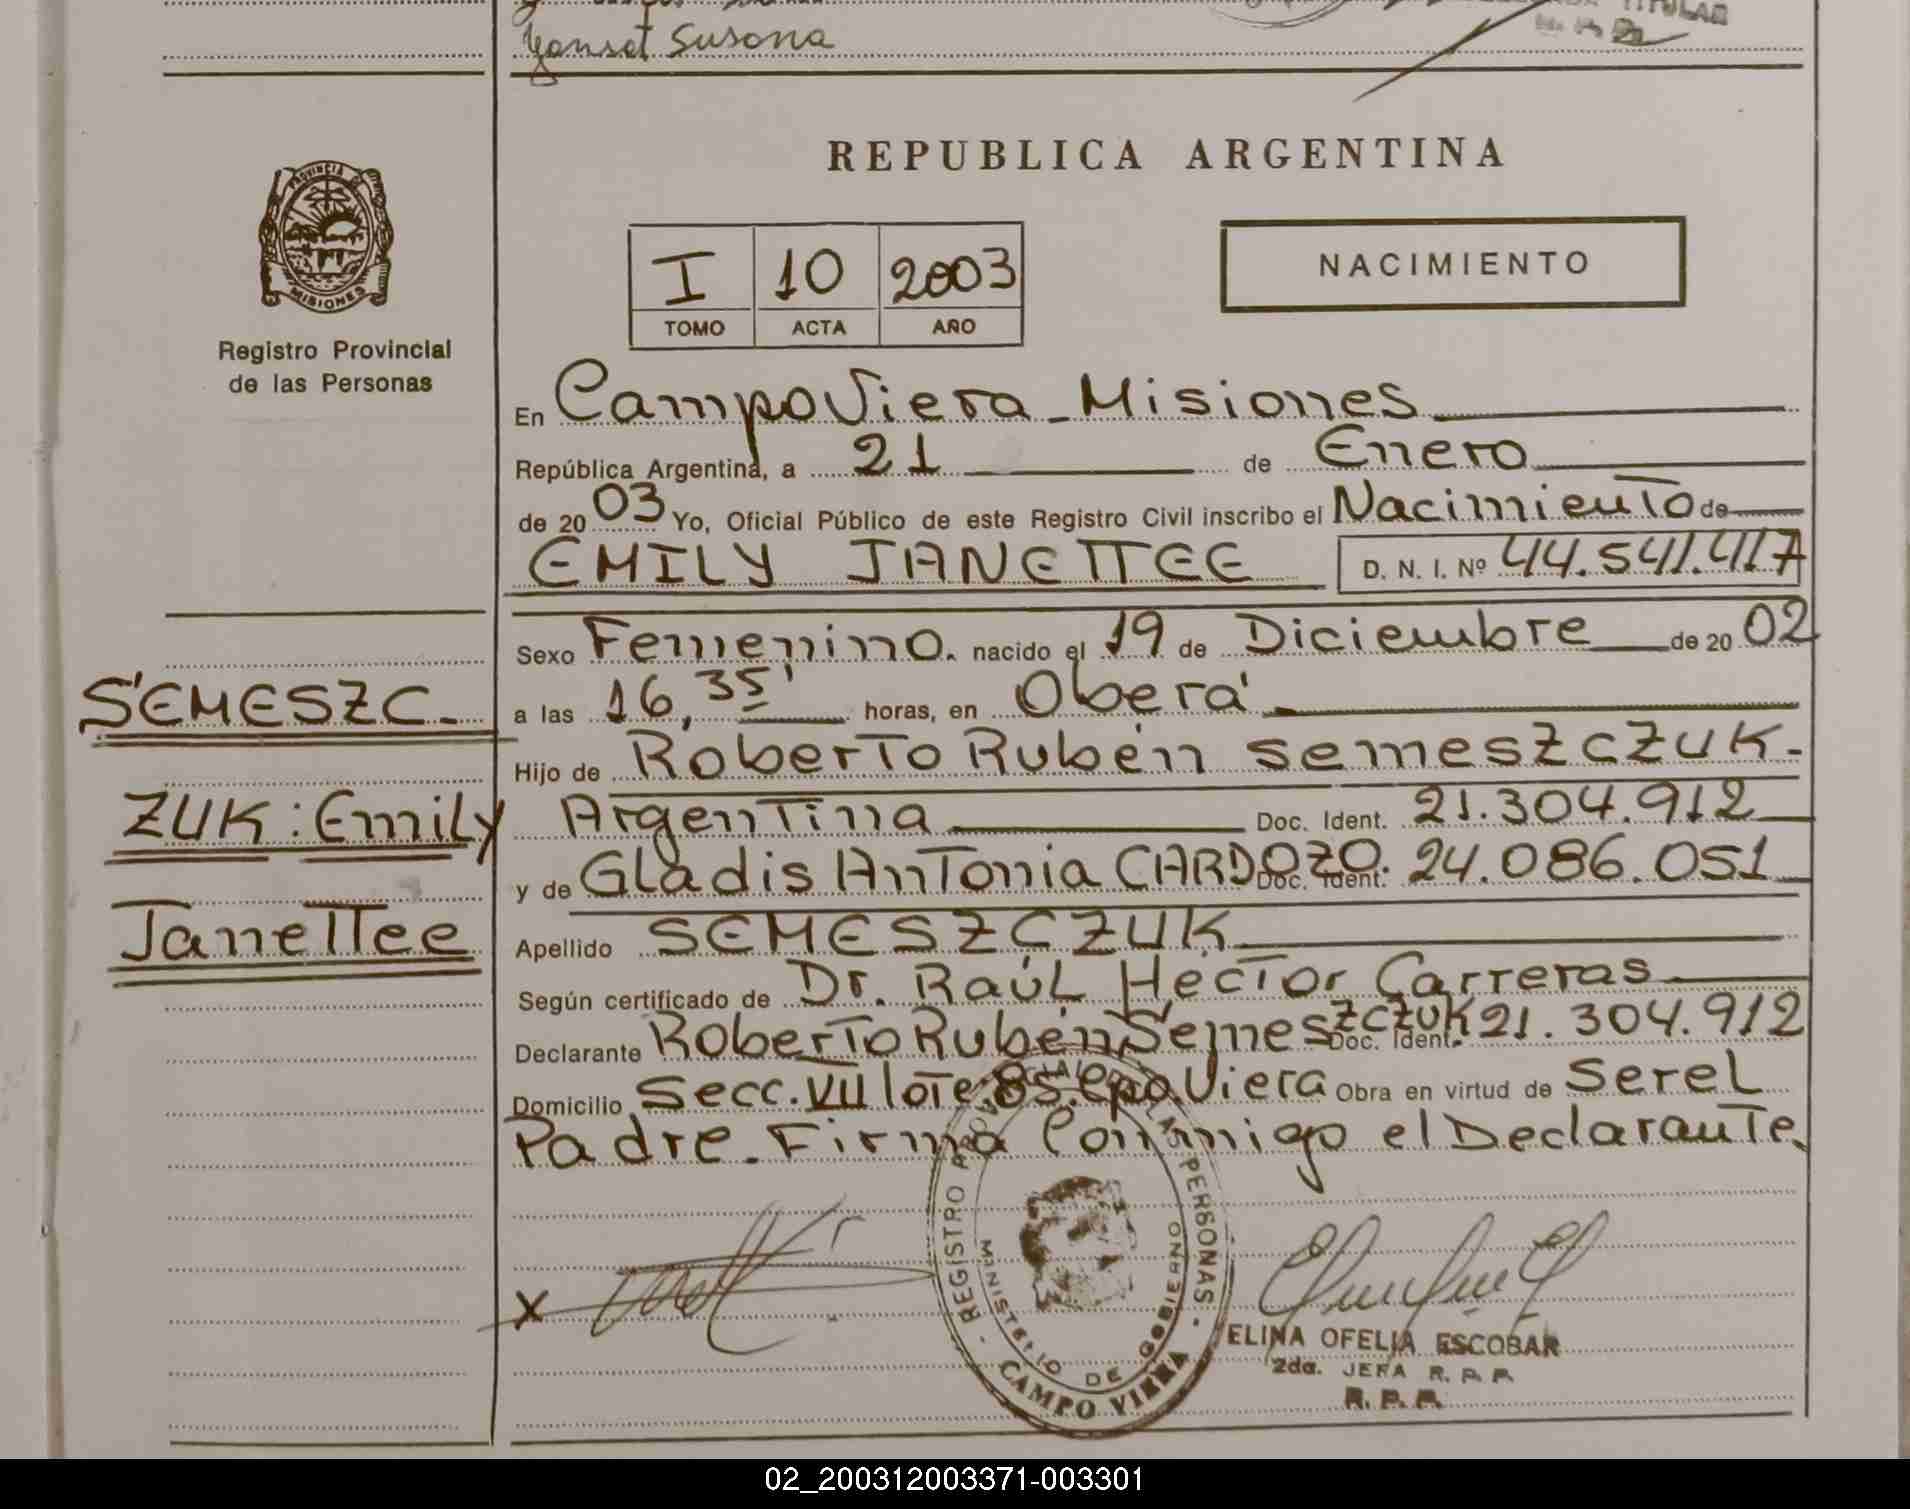 Susana
TITULAR
REPUBLICA ARGENTINA
PROVINCIA DE
MISIONES
Registro Provincial
de las Personas
I 10 2003
TOMO ACTA AÑO
NACIMIENTO
En Campo Viera - Misiones
República Argentina, a 21 de Enero
de 20 03 Yo, Oficial Público de este Registro Civil inscribo el Nacimiento de
EMILY JANETTEE D. N. I. Nº 44.541.417
Sexo Femenino. nacido el 19 de Diciembre de 20 02
SEMESZC.
a las 16,35' horas, en Oberá.
Hijo de Roberto Rubén semeszczuk.
ZUK: Emily
Argentina Doc. Ident. 21.304.912
y de Gladis Antonia CARDOZO. Doc. Ident. 24.086.051
Janettee
Apellido SEMESZCZUK
Según certificado de Dr. Raúl Hector Carreras
Declarante Roberto Rubén Semeszczuk Doc. Ident. 21.304.912
Domicilio Secc. VII lote 85. Cpo. Viera Obra en virtud de Ser el
Padre. Firma Conmigo el Declarante.
X
REGISTRO PROVINCIAL DE LAS PERSONAS
MINISTERIO DE GOBIERNO
CAMPO VIERA
ELINA OFELIA ESCOBAR
2da. JEFA R. P. P.
R. P. P.
02_200312003371-003301